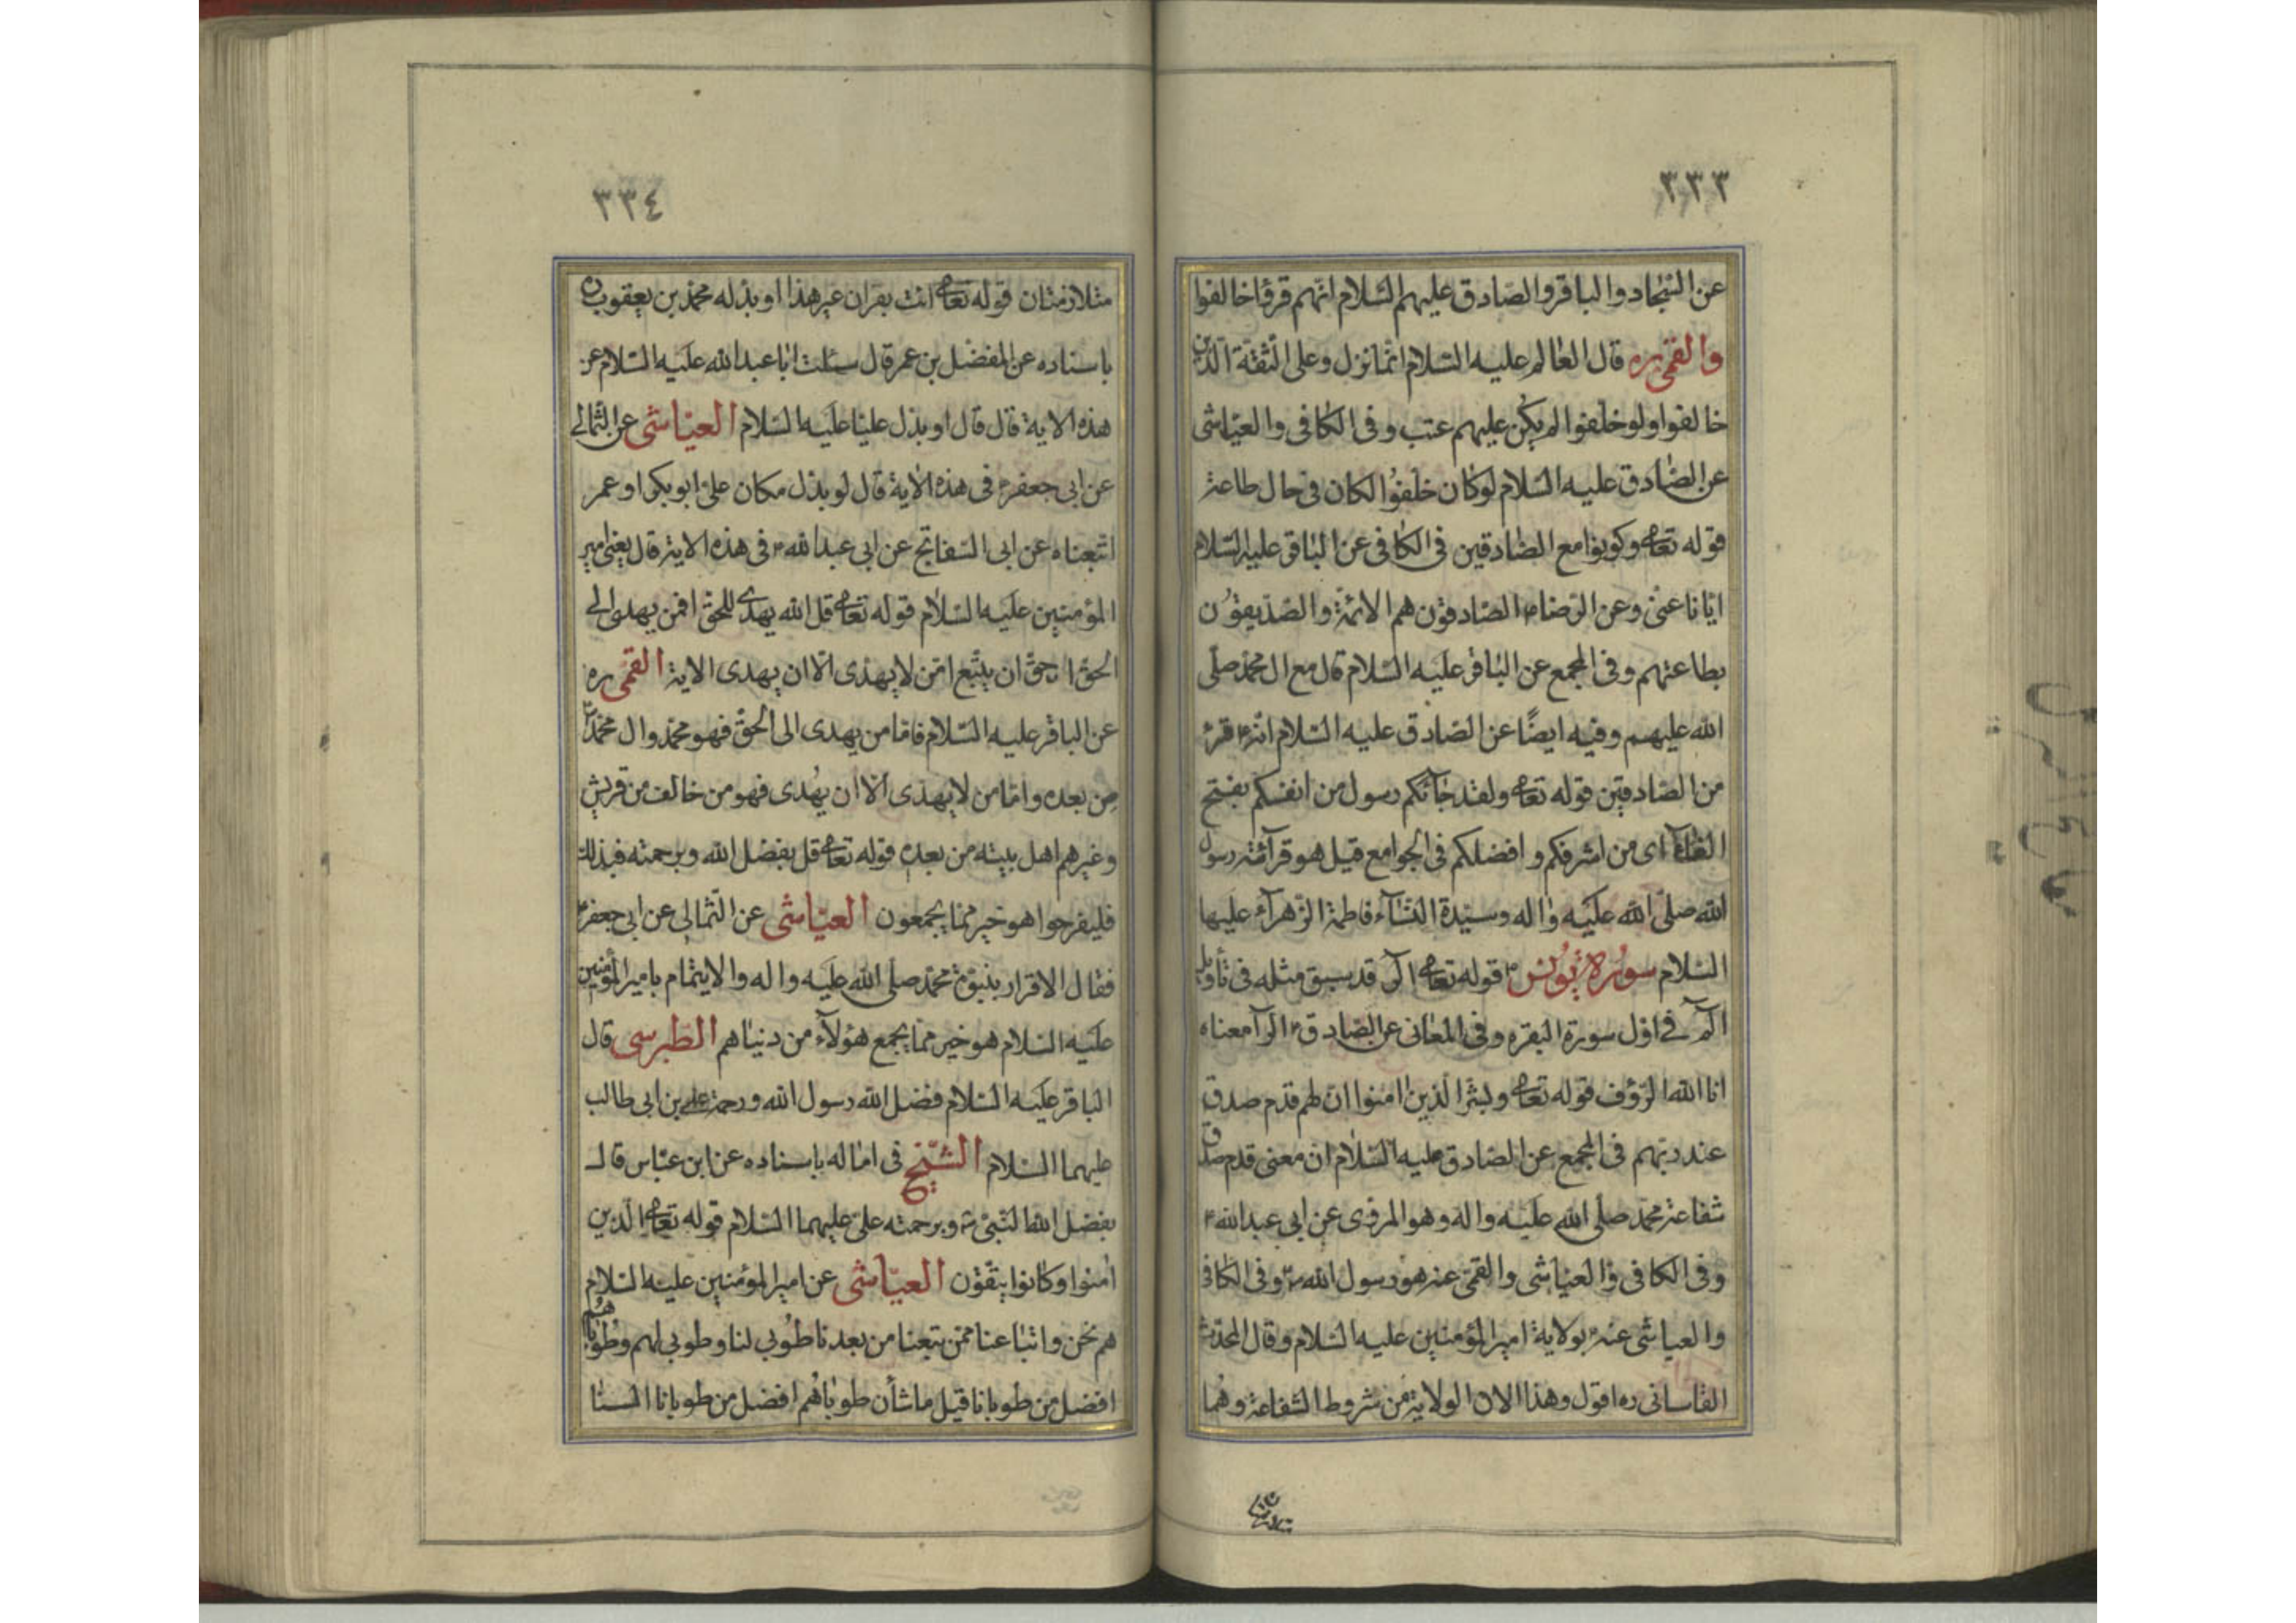 ٣٣٣
عن السّجاد والباقر والصّادق عليهم السّلام انّهم قرؤا خالفوا
والقمّى ره قال العالم عليه السّلام انّما نزل وعلى الثّلثة الّذين
خالفوا ولو خلّفوا لم يكن عليهم عتب وفى الكافى والعيّاشى
عن الصّادق عليه السّلام لو كان خلّفوا لكان فى حال طاعة
قوله تعالى وكونوا مع الصّادقين فى الكافى عن الباقر عليه السّلام
ايّانا عنى وعن الرّضا الصّادقون هم الائمّة والصّديقون
بطاعتهم وفى المجمع عن الباقر عليه السّلام قال مع ال محمّد صلّى
الله عليهم وفيه ايضًا عن الصّادق عليه السّلام انّه قرئ
من الصّادقين قوله تعالى ولقد جائكم رسول من انفسكم بفتح
الفاء اى من اشرفكم وافضلكم فى الجوامع قيل هو قرآئة رسول
الله صلّى الله عليه واله وسيّدة النّسآء فاطمة الزّهرآء عليها
السّلام سورة يونس قوله تعالى الر قد سبق مثله فى تأويل
الم فى اوّل سورة البقره وفى المعانى عن الصّادق الر معناه
انا الله الرّؤف قوله تعالى وبشّر الّذين امنوا انّ لهم قدم صدق
عند ربّهم فى المجمع عن الصّادق عليه السّلام انّ معنى قدم صدق
شفاعة محمّد صلّى الله عليه واله وهو المروى عن ابى عبد الله
وفى الكافى والعيّاشى والقمّى عنه هو رسول الله وفى الكافى
والعياشى عنه بولاية امير المؤمنين عليه السّلام وقال المحدّث
القاسانى ره اقول وهذا لان الولاية من شروط الشّفاعة وهما
٣٣٤
متلازمتان قوله تعالى ائت بقران غير هذا او بدّله محمّد بن يعقوب ره
باسناده عن المفضّل بن عمر قال سئلت ابا عبد الله عليه السّلام عن
هذه الاية قال قال او بدّل عليّا عليه السّلام العيّاشى عن الثّمالى
عن ابى جعفر فى هذه الاية قال لو بدّل مكان علىّ ابو بكر او عمر
اتّبعناه عن ابى السّفاتج عن ابى عبد الله فى هذه الاية قال يعنى امير
المؤمنين عليه السّلام قوله تعالى قل الله يهدى للحقّ افمن يهدى الى
الحقّ احقّ ان يتّبع امّن لا يهدّى الّا ان يهدى الاية القمّى ره
عن الباقر عليه السّلام فامّا من يهدى الى الحقّ فهو محمّد وال محمّد
من بعده وامّا من لا يهدّى الّا ان يُهدى فهو من خالف من قريش
وغيرهم اهل بيته من بعده قوله تعالى قل بفضل الله وبرحمته فبذلك
فليفرحوا هو خير ممّا يجمعون العيّاشى عن الثّمالى عن ابى جعفر
فقال الاقرار بنبوّة محمّد صلّى الله عليه واله والايتمام بامير المؤمنين
عليه السّلام هو خير ممّا يجمع هؤلآء من دنياهم الطّبرسى قال
الباقر عليه السّلام فضل الله رسول الله ورحمته علىّ بن ابى طالب
عليهما السّلام الشّيخ فى اماله باسناده عن ابن عبّاس قال
بفضل الله النّبىّ وبرحمته علىّ عليهما السّلام قوله تعالى الّذين
امنوا وكانوا يتّقون العيّاشى عن امير المؤمنين عليه السّلام
هم نحن واتباعنا ممّن تبعنا من بعدنا طوبى لنا وطوبى لهم وطوباهم
افضل من طوبانا قيل ما شأن طوباهُم افضل من طوبانا السنا